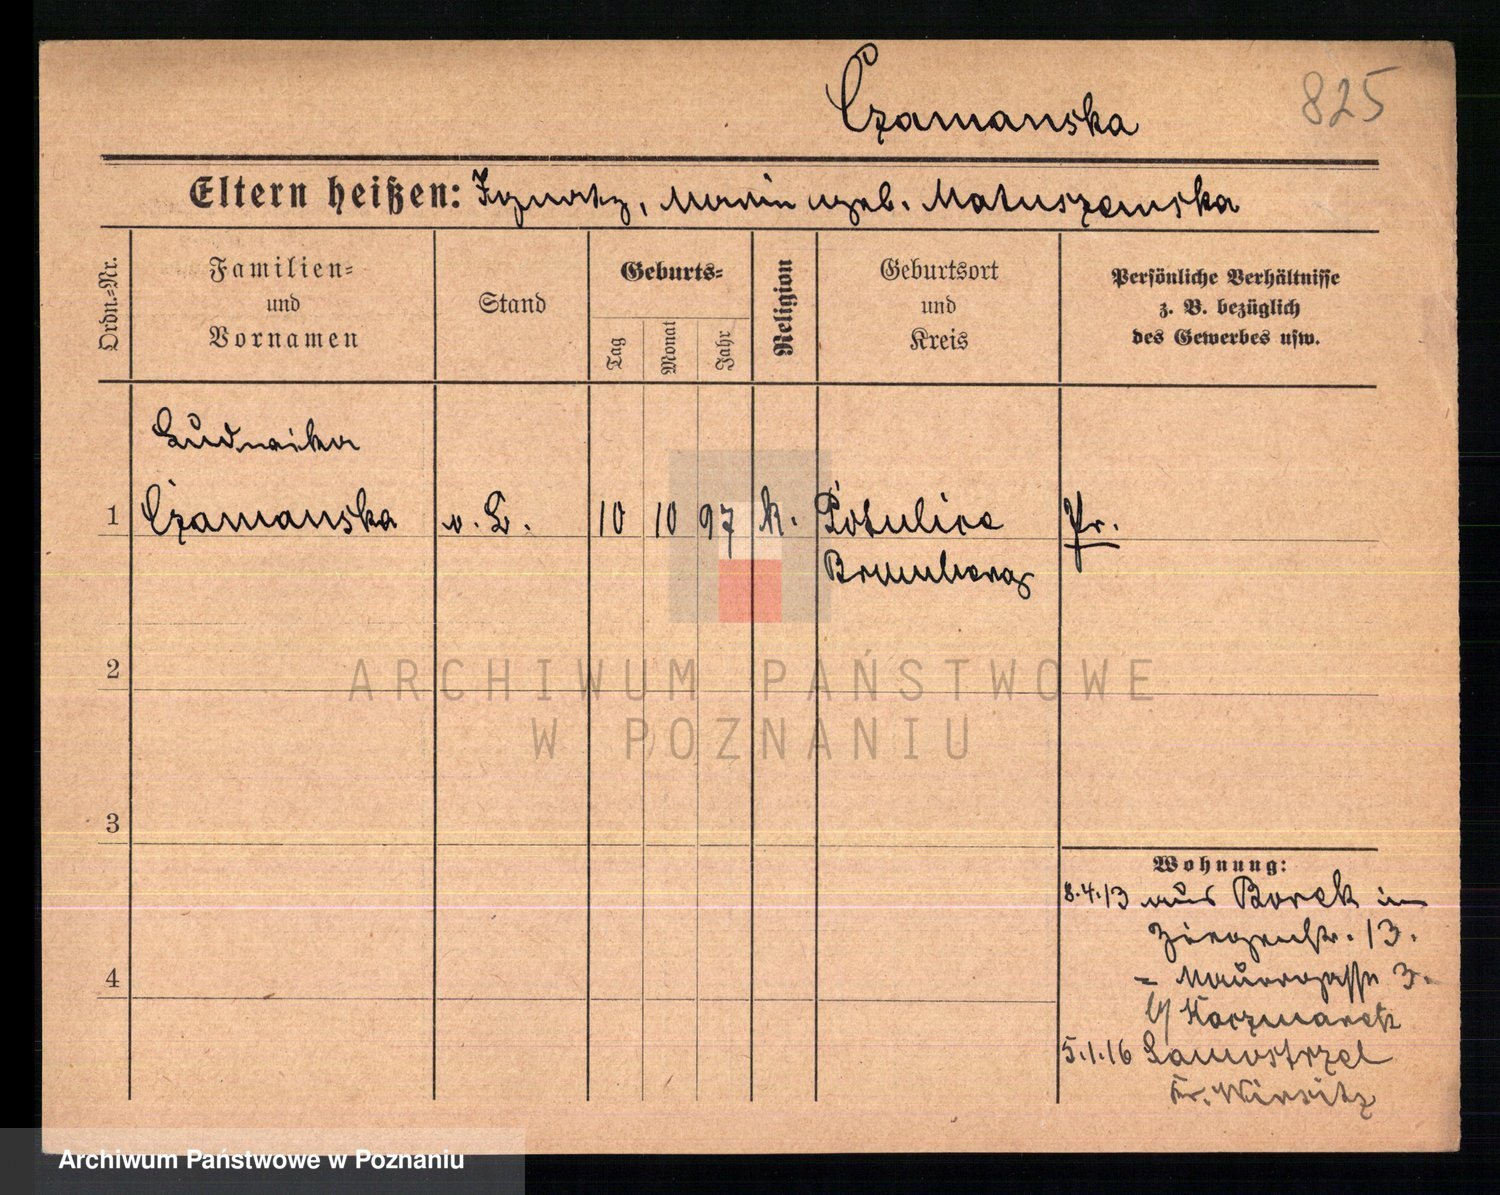 Czamanska
825
Eltern heißen: Ignatz, Marie geb. Matuszewska
Ordn.=Nr.
Familien=
und
Vornamen
Stand
Geburts=
Tag
Monat
Jahr
Religion
Geburtsort
und
Kreis
Persönliche Verhältnisse
z. B. bezüglich
des Gewerbes usw.
Ludwika
1 Czamanska v. L. 10 10 97 k. Potulice Pr.
Bromberg
2
ARCHIWUM PAŃSTWOWE
W POZNANIU
3
Wohnung:
8.4.13 aus Borek in
13.
4
- Mauergasse 3.
b/ Kaczmarek
5.1.16 Samostrzel
Kr. Wirsitz
Archiwum Państwowe w Poznaniu